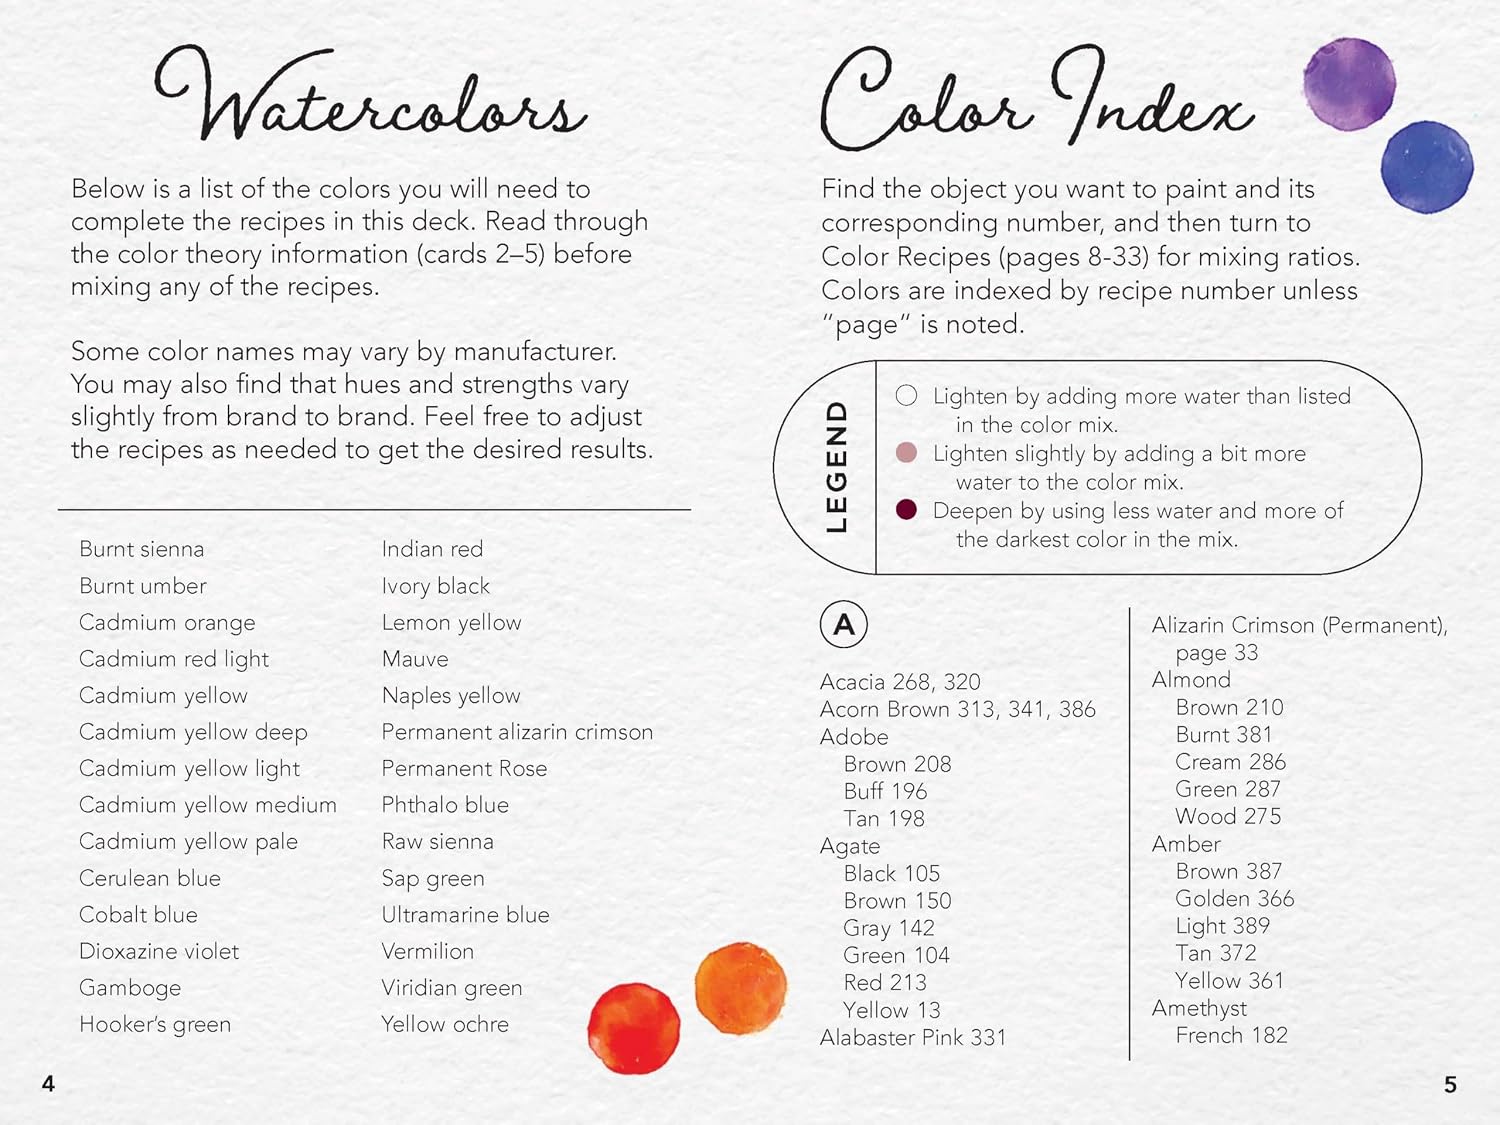 Watercolors
Below is a list of the colors you will need to
complete the recipes in this deck. Read through
the color theory information (cards 2–5) before
mixing any of the recipes.
Some color names may vary by manufacturer.
You may also find that hues and strengths vary
slightly from brand to brand. Feel free to adjust
the recipes as needed to get the desired results.
Burnt sienna
Burnt umber
Cadmium orange
Cadmium red light
Cadmium yellow
Cadmium yellow deep
Cadmium yellow light
Cadmium yellow medium
Cadmium yellow pale
Cerulean blue
Cobalt blue
Dioxazine violet
Gamboge
Hooker's green
Indian red
Ivory black
Lemon yellow
Mauve
Naples yellow
Permanent alizarin crimson
Permanent Rose
Phthalo blue
Raw sienna
Sap green
Ultramarine blue
Vermilion
Viridian green
Yellow ochre
4
Color Index
Find the object you want to paint and its
corresponding number, and then turn to
Color Recipes (pages 8-33) for mixing ratios.
Colors are indexed by recipe number unless
"page" is noted.
LEGEND
Lighten by adding more water than listed
in the color mix.
Lighten slightly by adding a bit more
water to the color mix.
Deepen by using less water and more of
the darkest color in the mix.
A
Acacia 268, 320
Acorn Brown 313, 341, 386
Adobe
Brown 208
Buff 196
Tan 198
Agate
Black 105
Brown 150
Gray 142
Green 104
Red 213
Yellow 13
Alabaster Pink 331
Alizarin Crimson (Permanent),
page 33
Almond
Brown 210
Burnt 381
Cream 286
Green 287
Wood 275
Amber
Brown 387
Golden 366
Light 389
Tan 372
Yellow 361
Amethyst
French 182
5